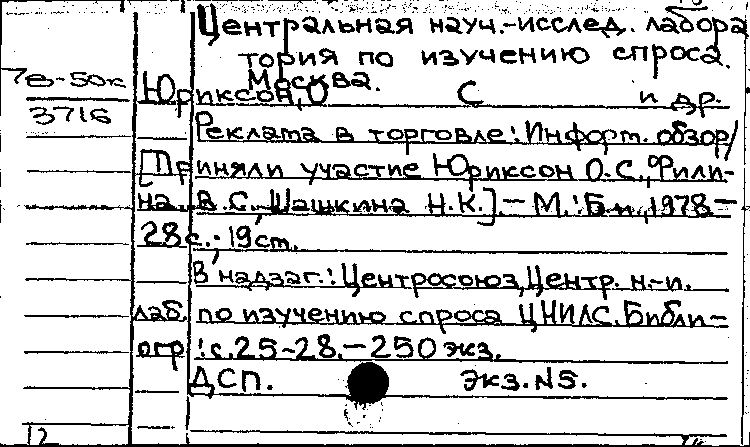 Центральная науч.-исслед. лабора
тория по изучению спроса.
Москва.
7в-50к
3716
Юриксон, О С и др.
Реклама в торговле: Информ. обзор/
[Приняли участие Юриксон О.С., Фили-
на В.С., Шашкина Н.К.].- М.: Б.и., 1978-
28с.; 19см.
В надзаг.: Центросоюз, Центр. н-и.
лаб. по изучению спроса ЦНИЛС. Библи-
огр.: с.25-28.- 250 экз.
ДСП. Экз. N5.
12